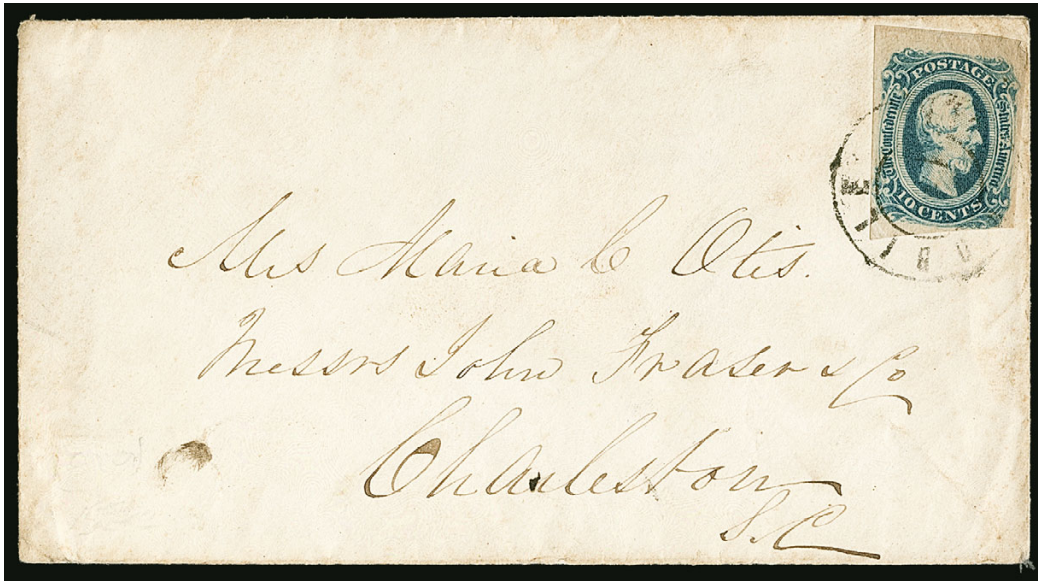 POSTAGE
The Confederate States America
10 CENTS
Mrs Maria C Otis.
Messrs John Fraser & Co
Charleston
S. C